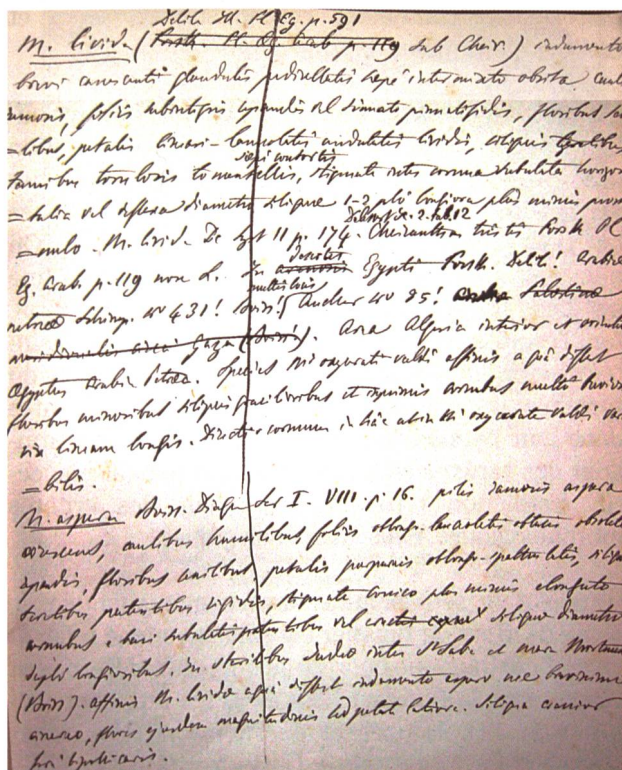 Delile Ill. Fl. Eg. p. 591
M. livida (Forsk. Fl. Eg. Arab p. 119 sub Cheir.) indumento
brevi canescenti glandulis pedicellatis saepe intermixto obsita
ramosis, foliis subintegris repandis vel sinnato pinnatifidis, floribus
=libus, petalis lineari-lanceolatis undulatis lividis, siliquis
saepe contortis
torulosis tomentellis, stigmatis inter cornua subulata horizon
=talia vel reflexa diametro siliquae 1-2 plo longiora plus minus prom
=nulo. M. livid. De syst II p. 174. Cheiranthus tristis Forsk Fl
Eg. Arab. p. 119 non L. In desertis Egypti Forsk. Delile! Arabiae
petraeae Schimp. no 431! Boiss! Aucher no 85! Palestinae
meridionalis circa Gaza (Boiss). Area Algeria interior et orient
Ægyptus Arabia Petraea. Species M. oxyceratae valde affinis a quâ differt
floribus minoribus siliquis gracilioribus et imprimis cornubus multo brevior
vix lineam longis. Directio cornuum in hâc ac in M. oxycerate valde var
=bilis.
M. aspera Boiss. Diagn Ser I. VIII. p. 16. pilis ramosis aspera
caulibus humilibus foliis oblongo-lanceolatis obtusis obsolete
repandis, floribus petalis purpureis oblongo-spathulatis,
patentibus rigidis, stigmate conico plus minus elongato
cornubus e basi subulatis patentibus vel siliquae diametro
duplo longioribus. In sterilibus Judeae inter St Saba et mare Mortuum
(Boiss). affinis M. lividae a quâ differt indumento aspero nec brevissimo
cinereo, floris ejusdem magnitudinis sed petala latiora. Siliqua crassior